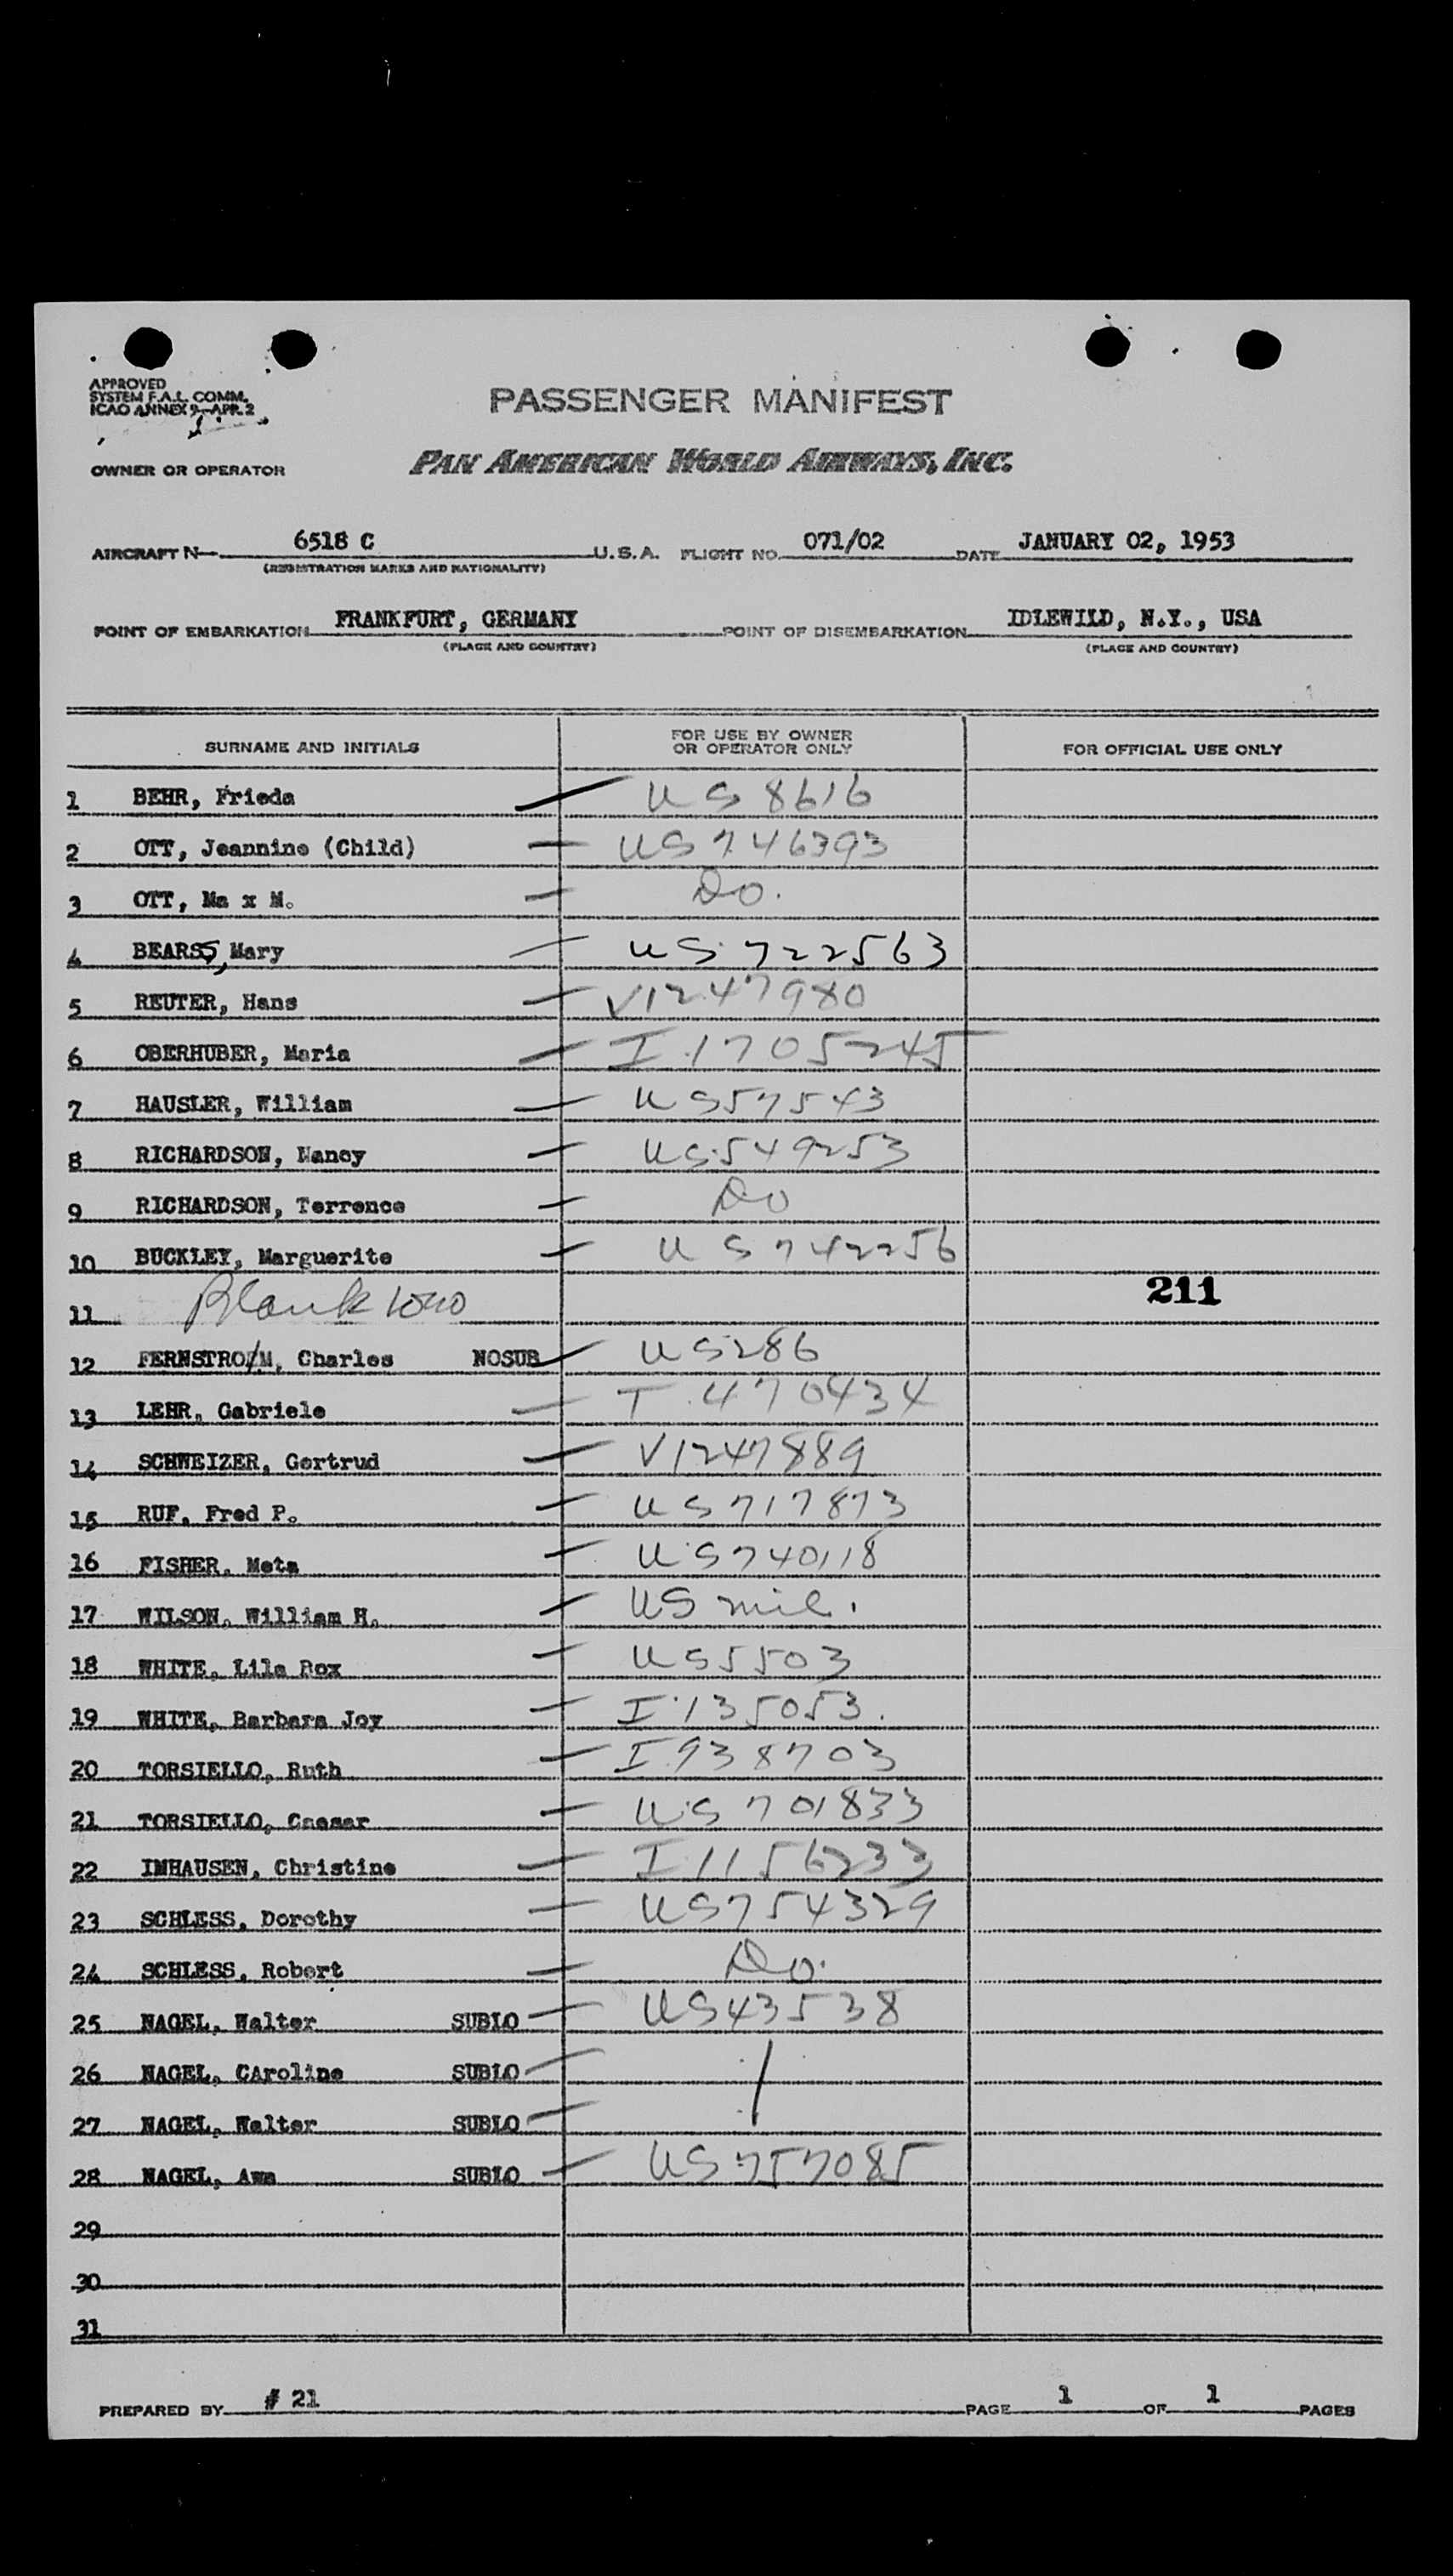 APPROVED
SYSTEM F.A.L. COMM.
ICAO ANNEX 9—APR. 2
PASSENGER MANIFEST
OWNER OR OPERATOR PAN AMERICAN WORLD AIRWAYS, INC.
AIRCRAFT N— 6518 C U.S.A. FLIGHT NO. 071/02 DATE JANUARY 02, 1953
(REGISTRATION MARKS AND NATIONALITY)
POINT OF EMBARKATION FRANKFURT, GERMANY POINT OF DISEMBARKATION IDLEWILD, N.Y., USA
(PLACE AND COUNTRY) (PLACE AND COUNTRY)
SURNAME AND INITIALS FOR USE BY OWNER OR OPERATOR ONLY FOR OFFICIAL USE ONLY
1 BEHR, Frieda US 8616
2 OTT, Jeannine (Child) US 746393
3 OTT, Ma x M. Do.
4 BEARSS, Mary US 722563
5 REUTER, Hans V1247980
6 OBERHUBER, Maria I 1705245
7 HAUSLER, William US57543
8 RICHARDSON, Nancy US549253
9 RICHARDSON, Terrence Do
10 BUCKLEY, Marguerite US 742256
11 Blank 211
12 FERNSTRO/M, Charles NOSUB US286
13 LEHR, Gabriele T 470434
14 SCHWEIZER, Gertrud V1247889
15 RUF, Fred P. US717873
16 FISHER, Meta US740118
17 WILSON, William H. US mil.
18 WHITE, Lila Rox US5503
19 WHITE, Barbara Joy I 135053.
20 TORSIELLO, Ruth I 938703
21 TORSIELLO, Caesar US 701833
22 IMHAUSEN, Christine I 1156233
23 SCHLESS, Dorothy US754329
24 SCHLESS, Robert Do.
25 NAGEL, Walter SUBLO US43538
26 NAGEL, CAroline SUBLO
27 NAGEL, Walter SUBLO
28 NAGEL, Awa SUBLO US757085
29
30
31
PREPARED BY # 21 PAGE 1 OF 1 PAGES